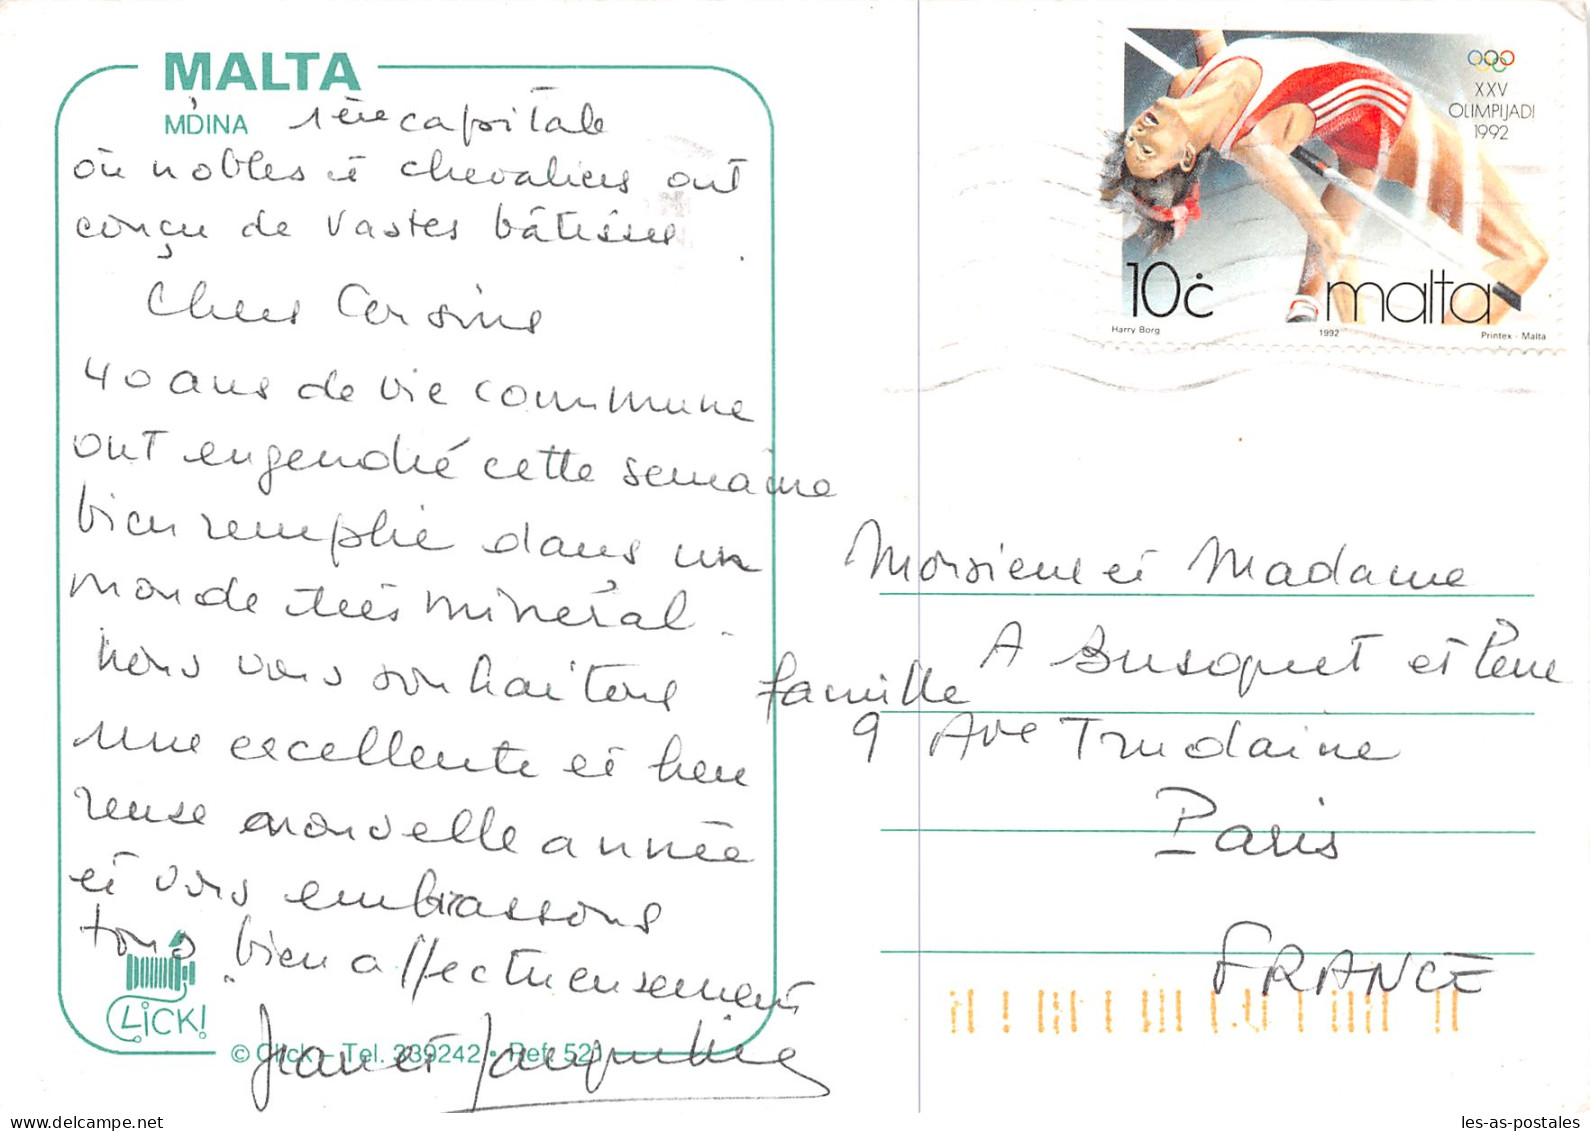 MALTA
MDINA 1ère capitale
où nobles et chevaliers ont
conçu de vastes bâtisses.
Chers Cousins
40 ans de vie commune
ont engendré cette semaine
bien remplie dans un
monde très minéral.
Nous vous souhaitons
une excellente et heu
reuse nouvelle année
et vous embrassons
tous bien affectueusement
et Jacqueline
CLICK!
© Click - Tel. 339242 • Ref. 52
XXV
OLIMPIJADI
1992
10ċ malta
Harry Borg 1992 Printex - Malta
Monsieur et Madame
A Busquet et
famille
9 Ave Trudaine
Paris
FRANCE
les-as-postales